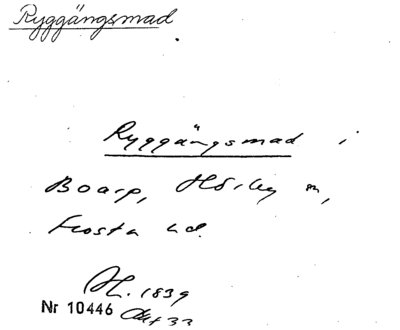 Ryggängsmad
Ryggängsmad i
Boarp, Hörby sn,
Frosta hd.
AH. 1839
Nr 10446 Akt 33